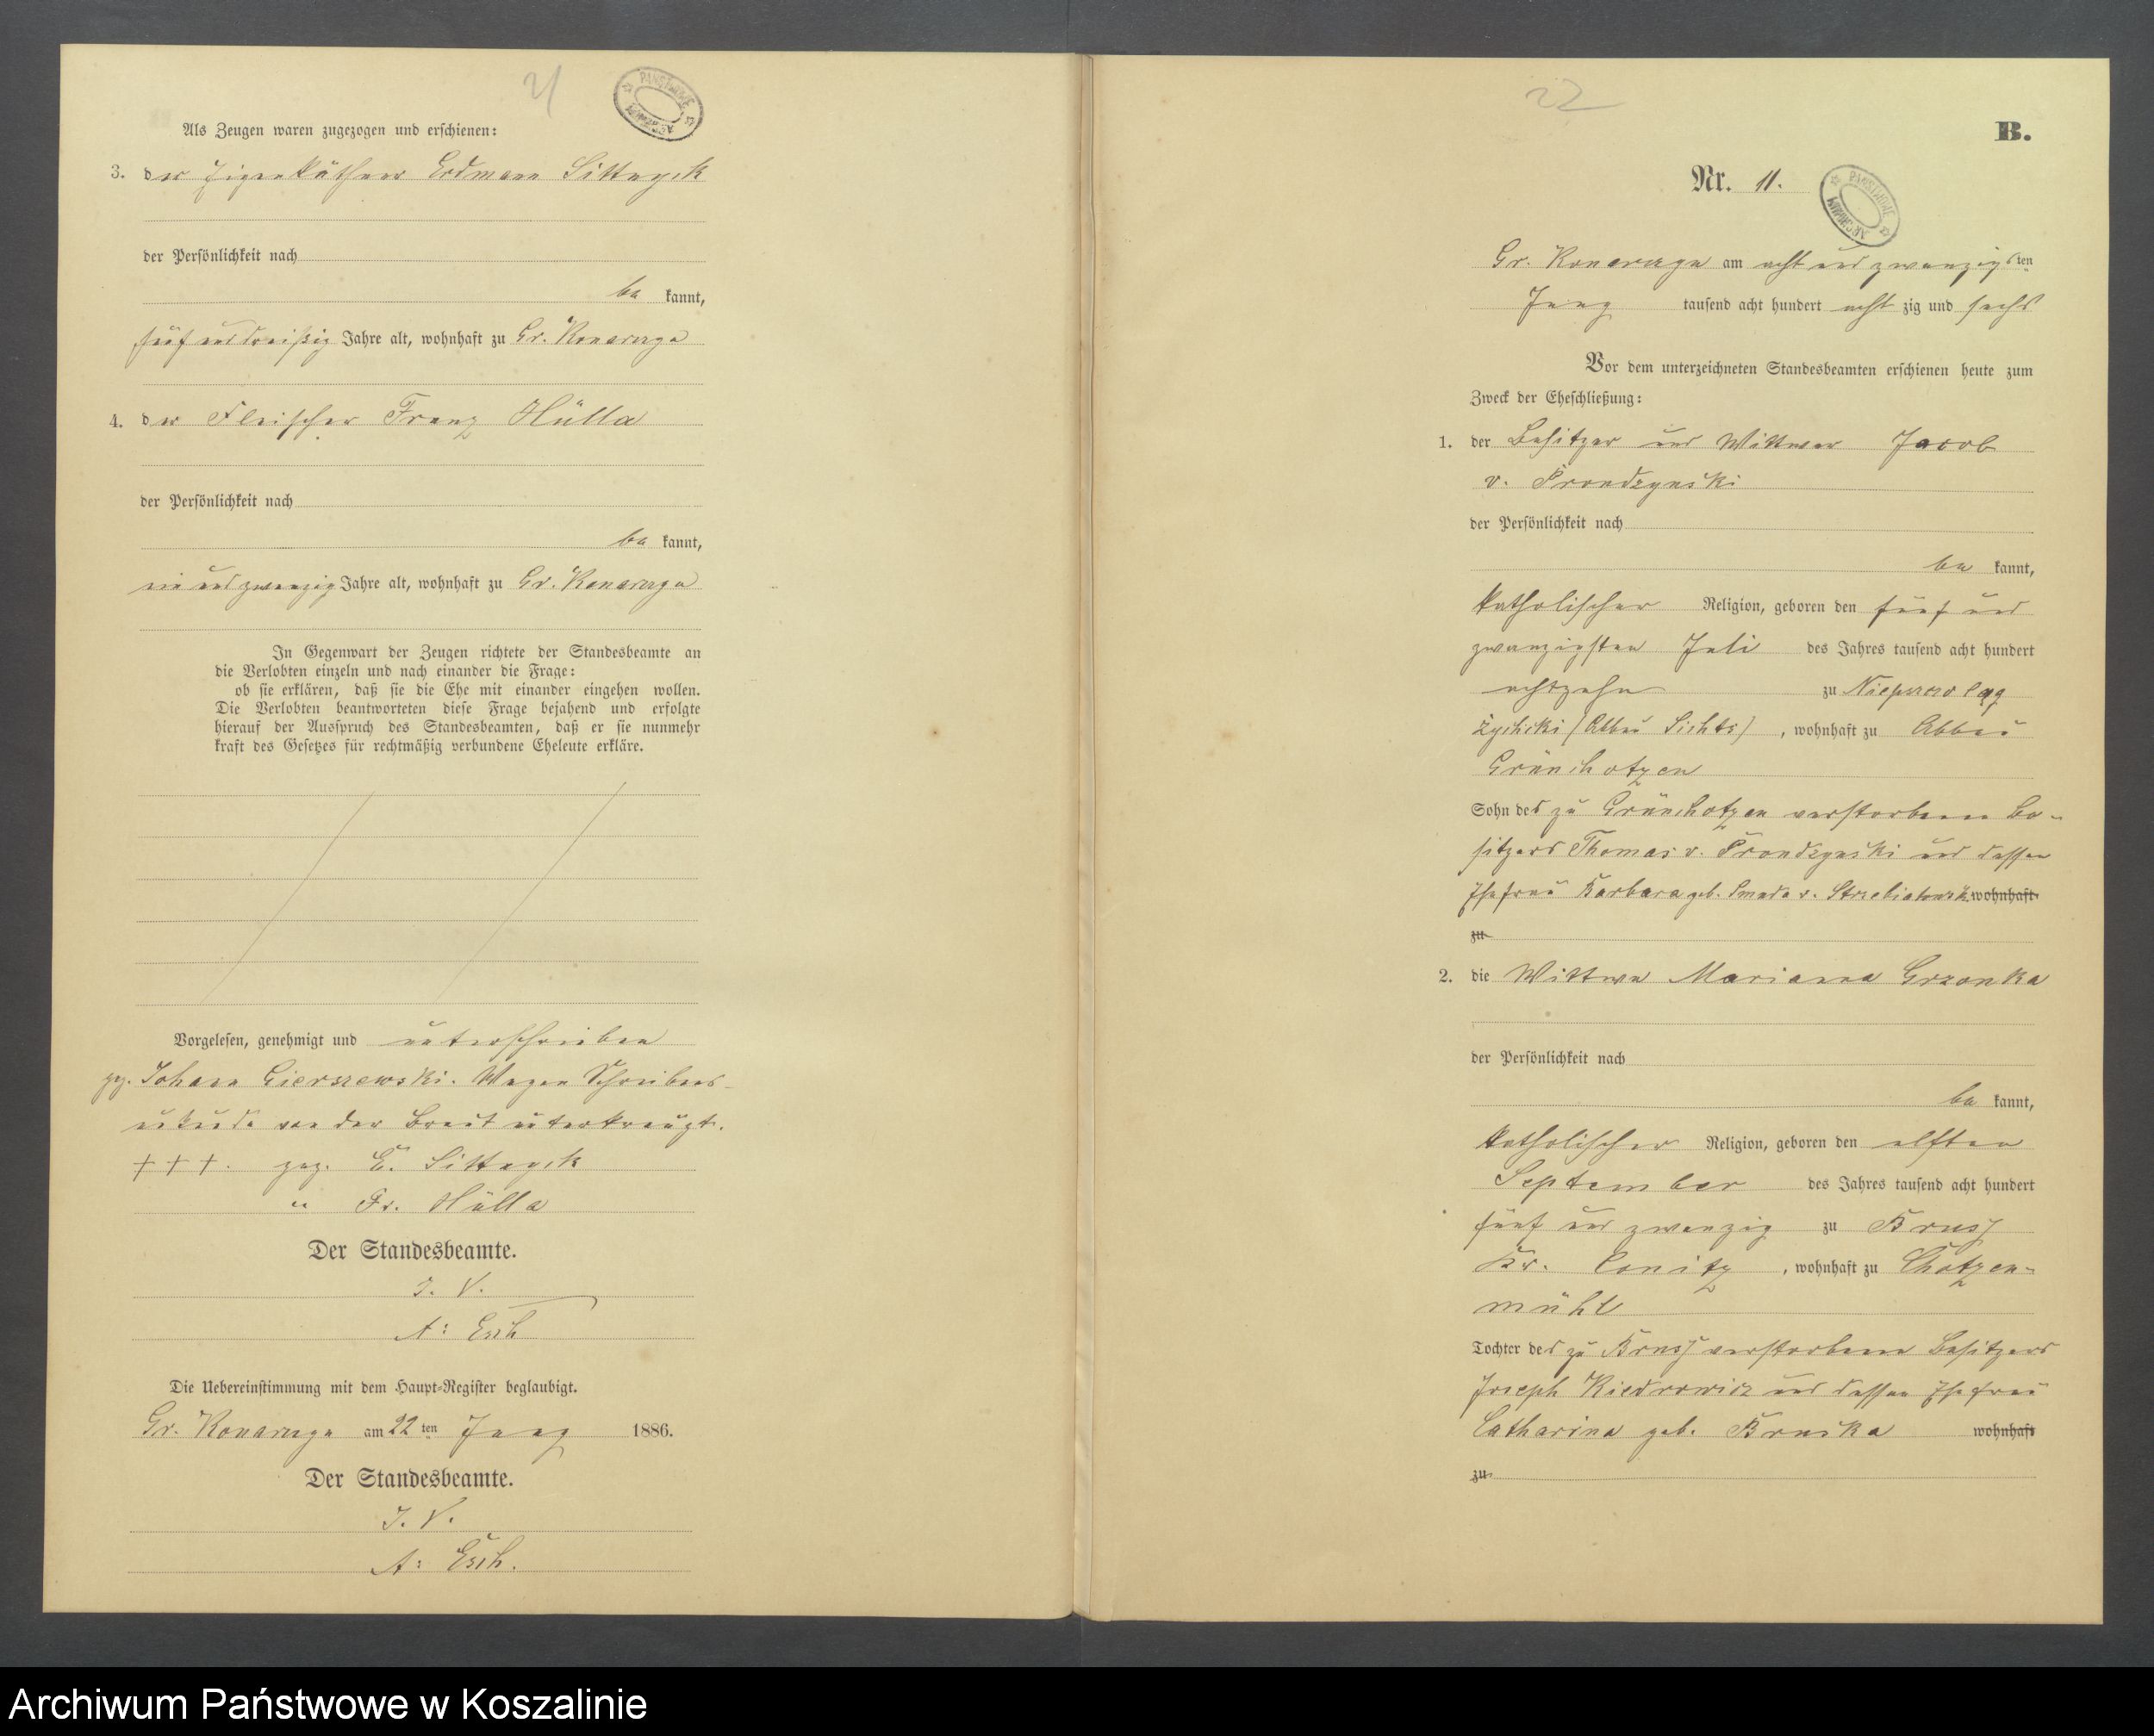 21
PAŃSTWOWE ARCHIWUM
Als Zeugen waren zugezogen und erschienen:
3. der Eigenkäthner Erdmann Sittnyck
der Persönlichkeit nach
be kannt,
fünf und dreißig Jahre alt, wohnhaft zu Gr. Konarczyn
4. der Fleischer Franz Hülla
der Persönlichkeit nach
be kannt,
ein und zwanzig Jahre alt, wohnhaft zu Gr. Konarczyn
In Gegenwart der Zeugen richtete der Standesbeamte an
die Verlobten einzeln und nach einander die Frage:
ob sie erklären, daß sie die Ehe mit einander eingehen wollen.
Die Verlobten beantworteten diese Frage bejahend und erfolgte
hierauf der Ausspruch des Standesbeamten, daß er sie nunmehr
kraft des Gesetzes für rechtmäßig verbundene Eheleute erkläre.
Vorgelesen, genehmigt und unterschrieben
gz. Johann Gierszewski. Wegen Schreibens-
unkunde von der Braut unterkreuzt.
+++. gez. E. Sittnyck
" Fr. Hülla
Der Standesbeamte.
I. V.
A: Esch
Die Uebereinstimmung mit dem Haupt-Register beglaubigt.
Gr. Konarczyn am 22 ten Juny 1886.
Der Standesbeamte.
I. V.
A: Esch.
22
B.
Nr. 11.
PAŃSTWOWE ARCHIWUM
Gr. Konarczyn am acht und zwanzigsten
Juny tausend acht hundert acht zig und sechs
Vor dem unterzeichneten Standesbeamten erschienen heute zum
Zweck der Eheschließung:
1. der Besitzer und Wittwer Jacob
v. Prondzynski
der Persönlichkeit nach
be kannt,
katholischer Religion, geboren den fünf und
zwanzigsten Juli des Jahres tausend acht hundert
achtzehn zu
(Abbau Lichts), wohnhaft zu Abbau
Grünchotzen
Sohn des zu Grünchotzen verstorbenen Be-
sitzers Thomas v. Prondzynski und dessen
Ehefrau Barbara geb. v. wohnhaft
zu
2. die Wittwe Marianna Grzonka
der Persönlichkeit nach
be kannt,
katholischer Religion, geboren den elften
September des Jahres tausend acht hundert
fünf und zwanzig zu Bruss
Kr. Conitz, wohnhaft zu Chotzen-
mühl
Tochter des zu Bruss verstorbenen Besitzers
Joseph Kiedrowicz und dessen Ehefrau
Catharina geb. Bruska wohnhaft
zu
Archiwum Państwowe w Koszalinie